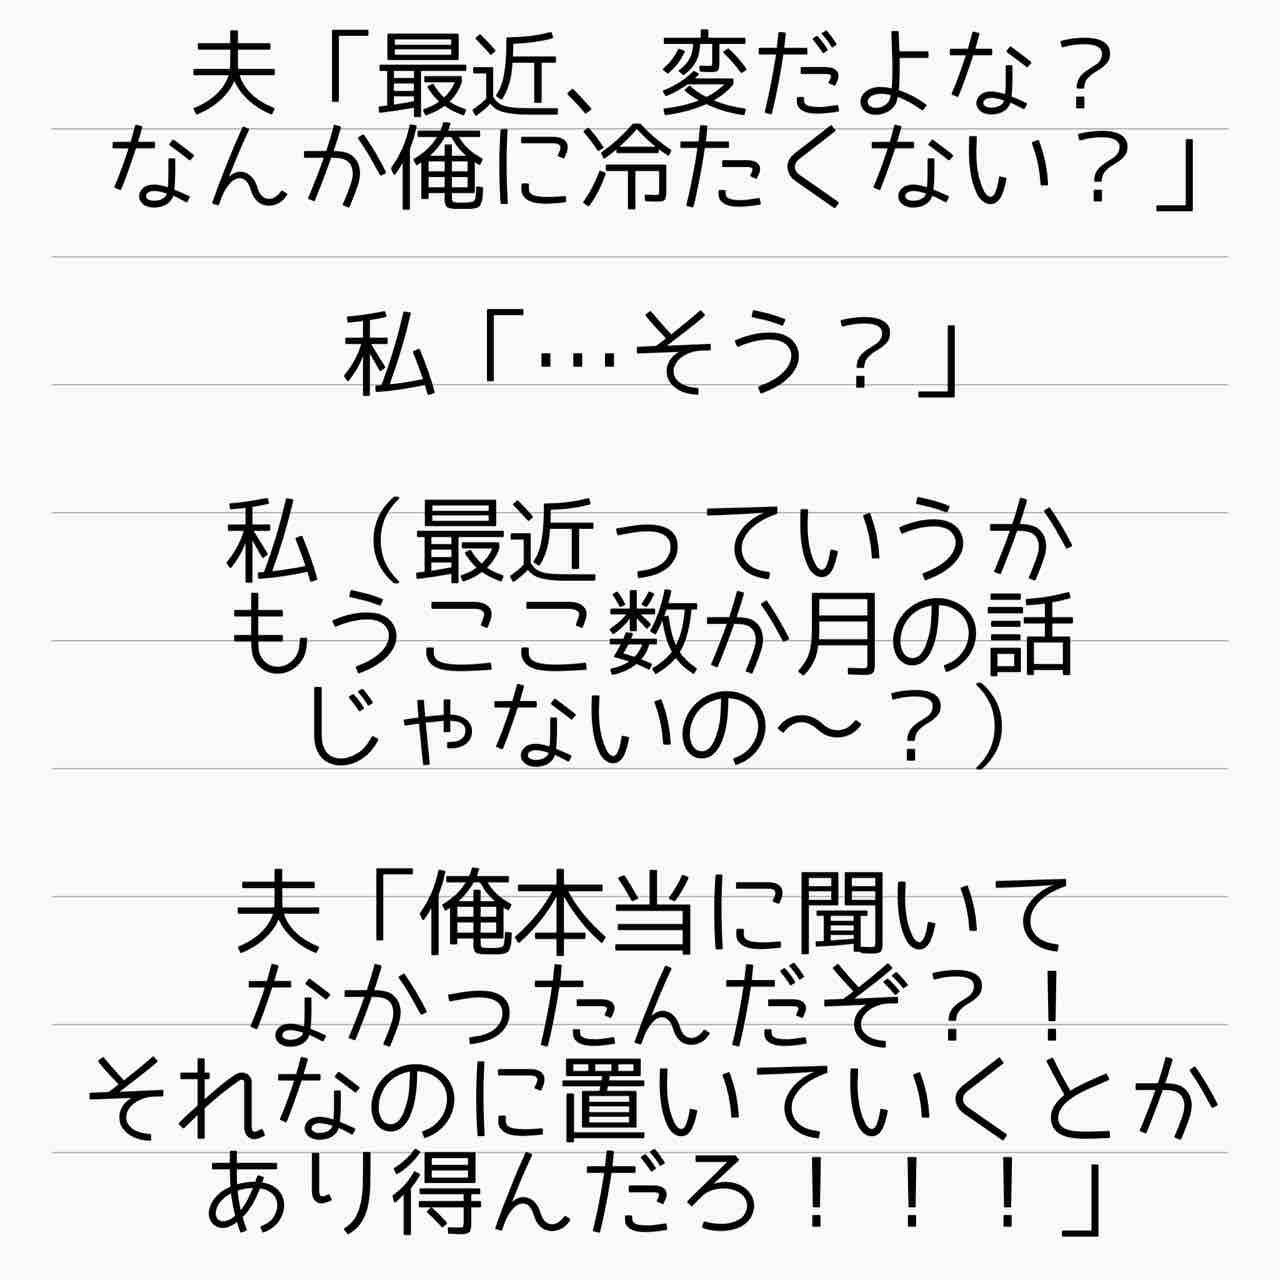 夫「最近、変だよな？
なんか俺に冷たくない？」
私「…そう？」
私（最近っていうか
もうここ数か月の話
じゃないの～？）
夫「俺本当に聞いて
なかったんだぞ？！
それなのに置いていくとか
あり得んだろ！！！」